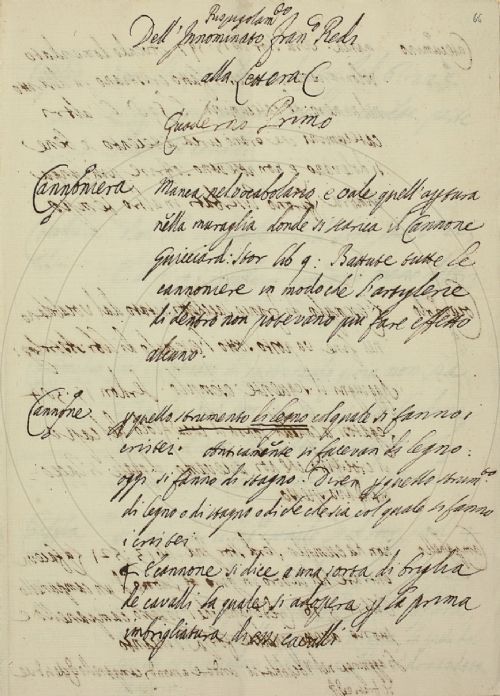 66
Rispigolam.to
Dell' Innominato Fran.co Redi
alla Lettera C
Quaderno Primo
Cannoniera
Manca nel Vocabolario e vale quell'apertura
nella muraglia donde si scarica il Cannone
Guicciard: Stor lib 9: Battute tutte le
cannoniere in modo che l'artiglerie
di dentro non potevano più fare effetto
alcuno
Cannone
quello strumento di legno col quale si fanno i
cristei. Anticamente si facevan di legno:
oggi si fanno di stagno. Direi quello strum.to
di legno o di stagno o di col quale si fanno
i cristei
E cannone si dice a una sorta di briglia
de cavalli la quale si adopera p la prima
imbrigliatura di essi cavalli